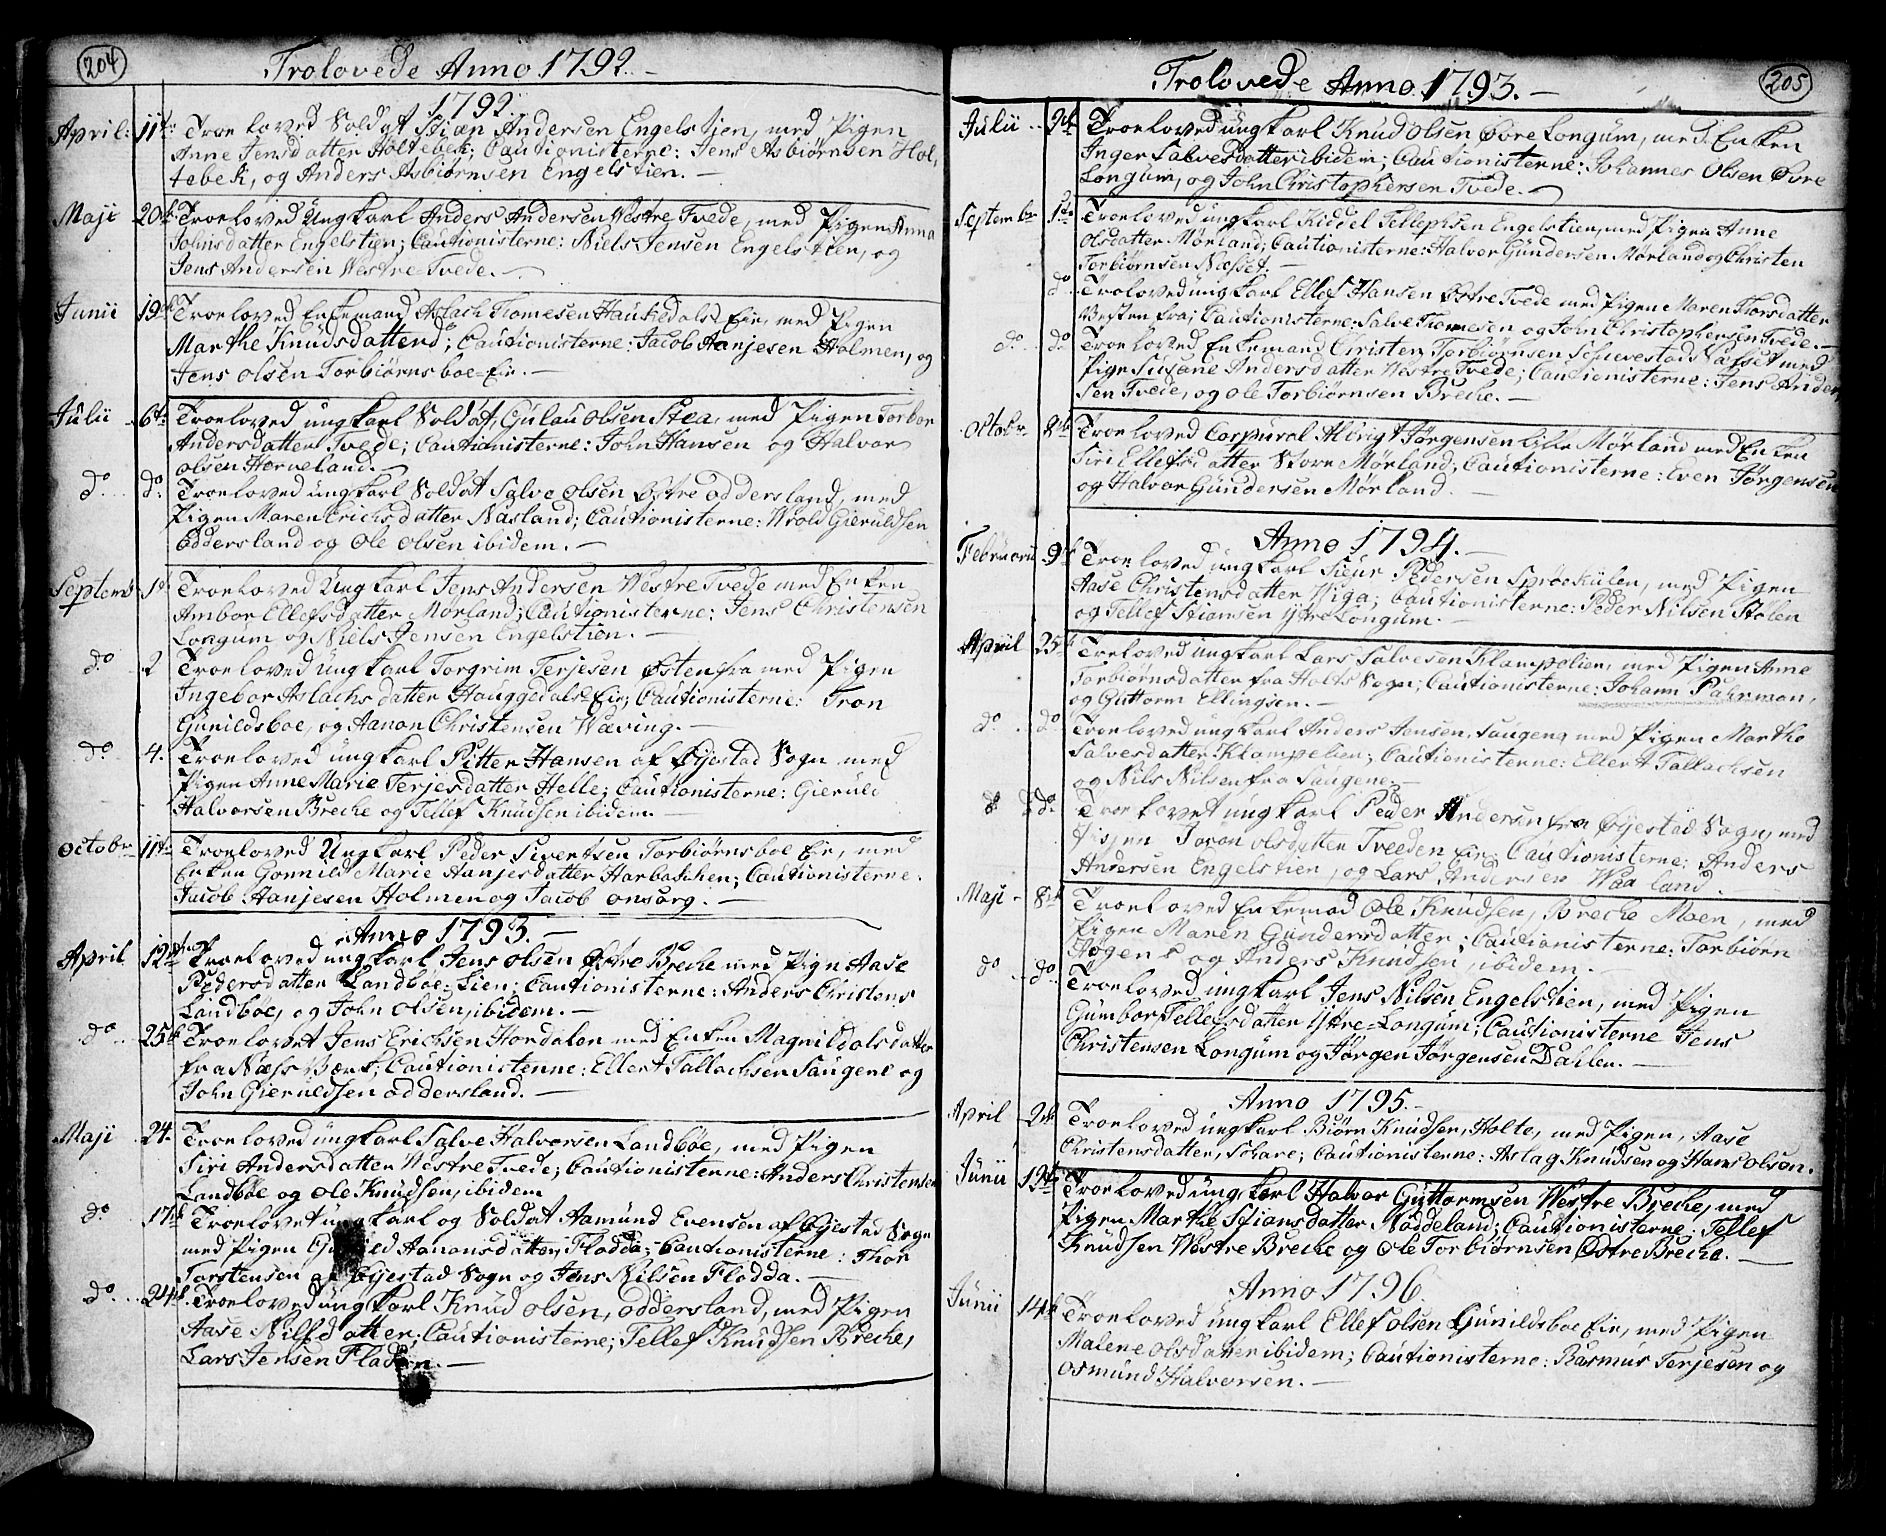 204
Trolovede Anno 1792. –
1792
April. 11te Troeloved Soldat Stian Andersen Engelstien, med Pigen
Anne Jensdatter Holtebek; Cautionisterne: Jens Asbiørnsen Hol,
tebek, og Anders Asbiørnsen Engelstien. –
Maji 20de Troeloved Ungkarl Anders Andersen Westre Tvede, med Pigen Anna
Johnsdatter Engelstien; Cautionisterne: Niels Jensen Engelstien, og
Jens Andersen Westre Tvede. –
Junii 19de Troeloved Enkemand Aslach Thomesen Haukedals Eie, med Pigen
Marthe Knudsdatter do; Cautionisterne: Jacob Aanjesen Holmen, og
Jens Olsen Torbiørnsboe-Eie. –
Julii 6te Troeloved ungkarl Soldat, Gulau Olsen Stea, med Pigen Torbor
Andersdatter Tvede; Cautionisterne: John Hansen og Halvor
Olsen Horneland. –
do.. do. Troeloved ungkarl Soldat Salve Olsen Østre Oddersland, med
Pigen Maren Erichsdatter Næsland; Cautionisterne: Wrold Gieruldsen
Oddersland og Ole Olsen ibidem. –
Septemb 1ste Troeloved Ungkarl Jens Andersen Westre Tvede med Enken
Ambor Ellefsdatter Mørland; Cautionisterne: Jens Christensen
Longum og Niels Jensen Engelstien. –
do 2 Troeloved ungkarl Torgrim Terjesen Østenfra med Pigen
Ingebor Aslachsdatter Hauggedals Eie; Cautionisterne: Tron
Gunildsboe, og Aanon Christensen Wæving. –
do. 4. Troeloved ungkarl Pitter Hansen af Øjestad Sogn med
Pigen Anne Marie Terjesdatter Helle; Cautionisterne: Gieruld
Halvorsen Breche og Tellef Knudsen ibidem. –
Octobr 11te Troeloved Ungkarl Peder Sivertsen Torbiørnsboe Eie, med
Enken Gonnild Marie Aanjesdatter Harbachken; Cautionisterne.
Jacob Aanjesen Holmen og Jacob Onsørg. –
Anno 1793. –
April 12te Troeloved ungkarl Jens Olsen Østre Breche med Pign Aase
Pedersdatter Landbøe-Lien; Cautionisterne: Anders Christens
Landbøe, og John Olsen, ibidem. –
do.. 25de Troelovet Jens Erichsen Hordalen med Enken Magnild Olsdatter
fra Næss Værk; Cautionisterne: Ellert Tallachsen Saugene og
John Gieruldsen Oddersland. –
Maji 24. Troeloved ungkarl Salve Halvorsen Landbøe, med Pigen
Siri Andersdatter Westre Tvede; Cautionisterne: Anders Christensen
Landbøe og Ole Knudsen, ibidem
do. 17de Troelovet ungkarl og Soldat Aamund Evensen af Øjestad Sogn
med Pigen Aanonsdatter Flødda; Cautionisterne: Thor
Torstensen af Øjestad Sogn og Jens Nilsen Flødda. –
do... 24de Troeloved ungkarl Knud Olsen, Oddersland, med Pigen
Aase Nilsdatter; Cautionisterne; Tellef Knudsen Breche,
Lars Jensen Fladen. –
205
Trolovede Anno 1793. –
Julii.. 2de Troeloved ungkarl Knud Olsen Øvre Longum, med Enken
Inger Salvesdatter ibidem; Cautionisterne: Johannes Olsen Øvre
Longum, og John Christophersen Tvede. –
Septembr 1ste Troeloved ungkarl Kiddel Tellephsen Engelstien, med Pigen Anne
Olsdatter Mørland; Cautionisterne: Halvor Gundersen Mørland og Christen
Torbiørnsen Næsset. –
do. Troloved ungkarl Ellef Hansen Østre Tvede med Pigen Maren Thorsdatter
Vesten fra; Cautionisterne: Salve Thomesen og John Christophersen Tvede. –
do do Troeloved Enkemand Christen Torbiørnsen Schuvestad Næsset med
Pige Susane Andersdatter Westre Tvede; Cautionisterne: Jens Ander,
sen Tvede, og Ole Torbiørnsen Breche. –
Octobr. 8de Troeloved Corporal Albrigt Jørgensen Lille Mørland med Enken
Siri Ellefsdatter Store Mørland; Cautionisterne: Even Jørgensen
og Halvor Gundersen Mørland. –
Anno 1794. –
Februari 9de Troeloved ungkarl Siur Pedersen Sprøekulen, med Pigen
Aase Christensdatter Viga; Cautionisterne: Peder Nilsen Stølen
og Tellef Stiansen Ytre Longum. –
April 25de Troeloved ungkarl Lars Salvesen Klampelien, med Pigen Anne
Torbiørnsdatter fra Holts Sogn; Cautionisterne: Johann Pahrman,
og Guttorm Ellingsen. –
do. . do Troeloved ungkarl Anders Jensen, Saugene med Pigen Marthe
Salvesdatter Klampelien; Cautionisterne: Ellert Tallachsen
og Nils Nilsen fra Saugene. –
do do Troelovet ungkarl Peder Andersen fra Øyestad Sogn, med
Pigen Joran Olsdatter Tveeden Eie; Cautionisterne: Anders
Andersen Engelstien, og Lars Andersen Waaland.
Maji – 8de Troeloved Enkemad Ole Knudsen, Breche Moen, med
Pigen Maren Gundersdatter; Cautionisterne: Torbiørn
Høgens og Anders Knudsen, ibidem. –
do .. do. Troeloved ungkarl Jens Nilsen Engelstien, med Pigen
Gumbor Tellefsdatter Ytre-Longum; Cautionisterne Jens
Christensen Longum og Jørgen Jørgensen Dahlen. –
Anno 1795. –
April 2de Troeloved ungkarl Biørn Knudsen, Holte, med Pigen, Aase
Christensdatter, Schare; Cautionisterne: Aslag Knudsen og Hans Olsøn.
Junii 12te Troeloved ungkarl Halvor Guttormsen Westre Breche, med
Pigen Marthe Stiansdatter Nøddeland; Cautionisterne: Tellef
Knudsen Westre Breche og Ole Torbiørnsen Østre Breche. –
Anno 1796.
Junii 14de Troeloved ungkarl Ellef Olsen Gunildsboe Eie, med Pigen
Malene Olsdatter ibidem; Cautionisterne: Rasmus Terjesen og
Osmund Halvorsen. –